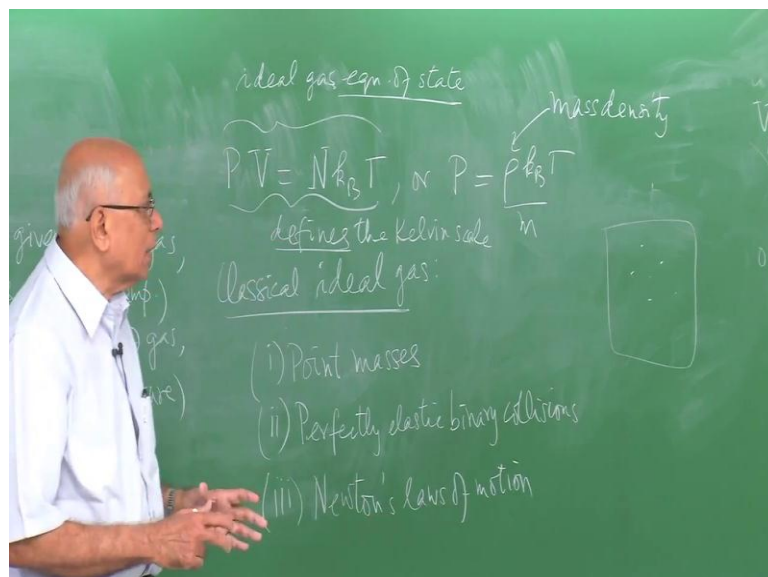 ideal gas eqn. of state
mass density
PV = Nk_BT, or P = ρk_BT/m
defines the Kelvin scale
Classical ideal gas:
(i) Point masses
(ii) Perfectly elastic binary collisions
(iii) Newton's laws of motion
give
gas,
V